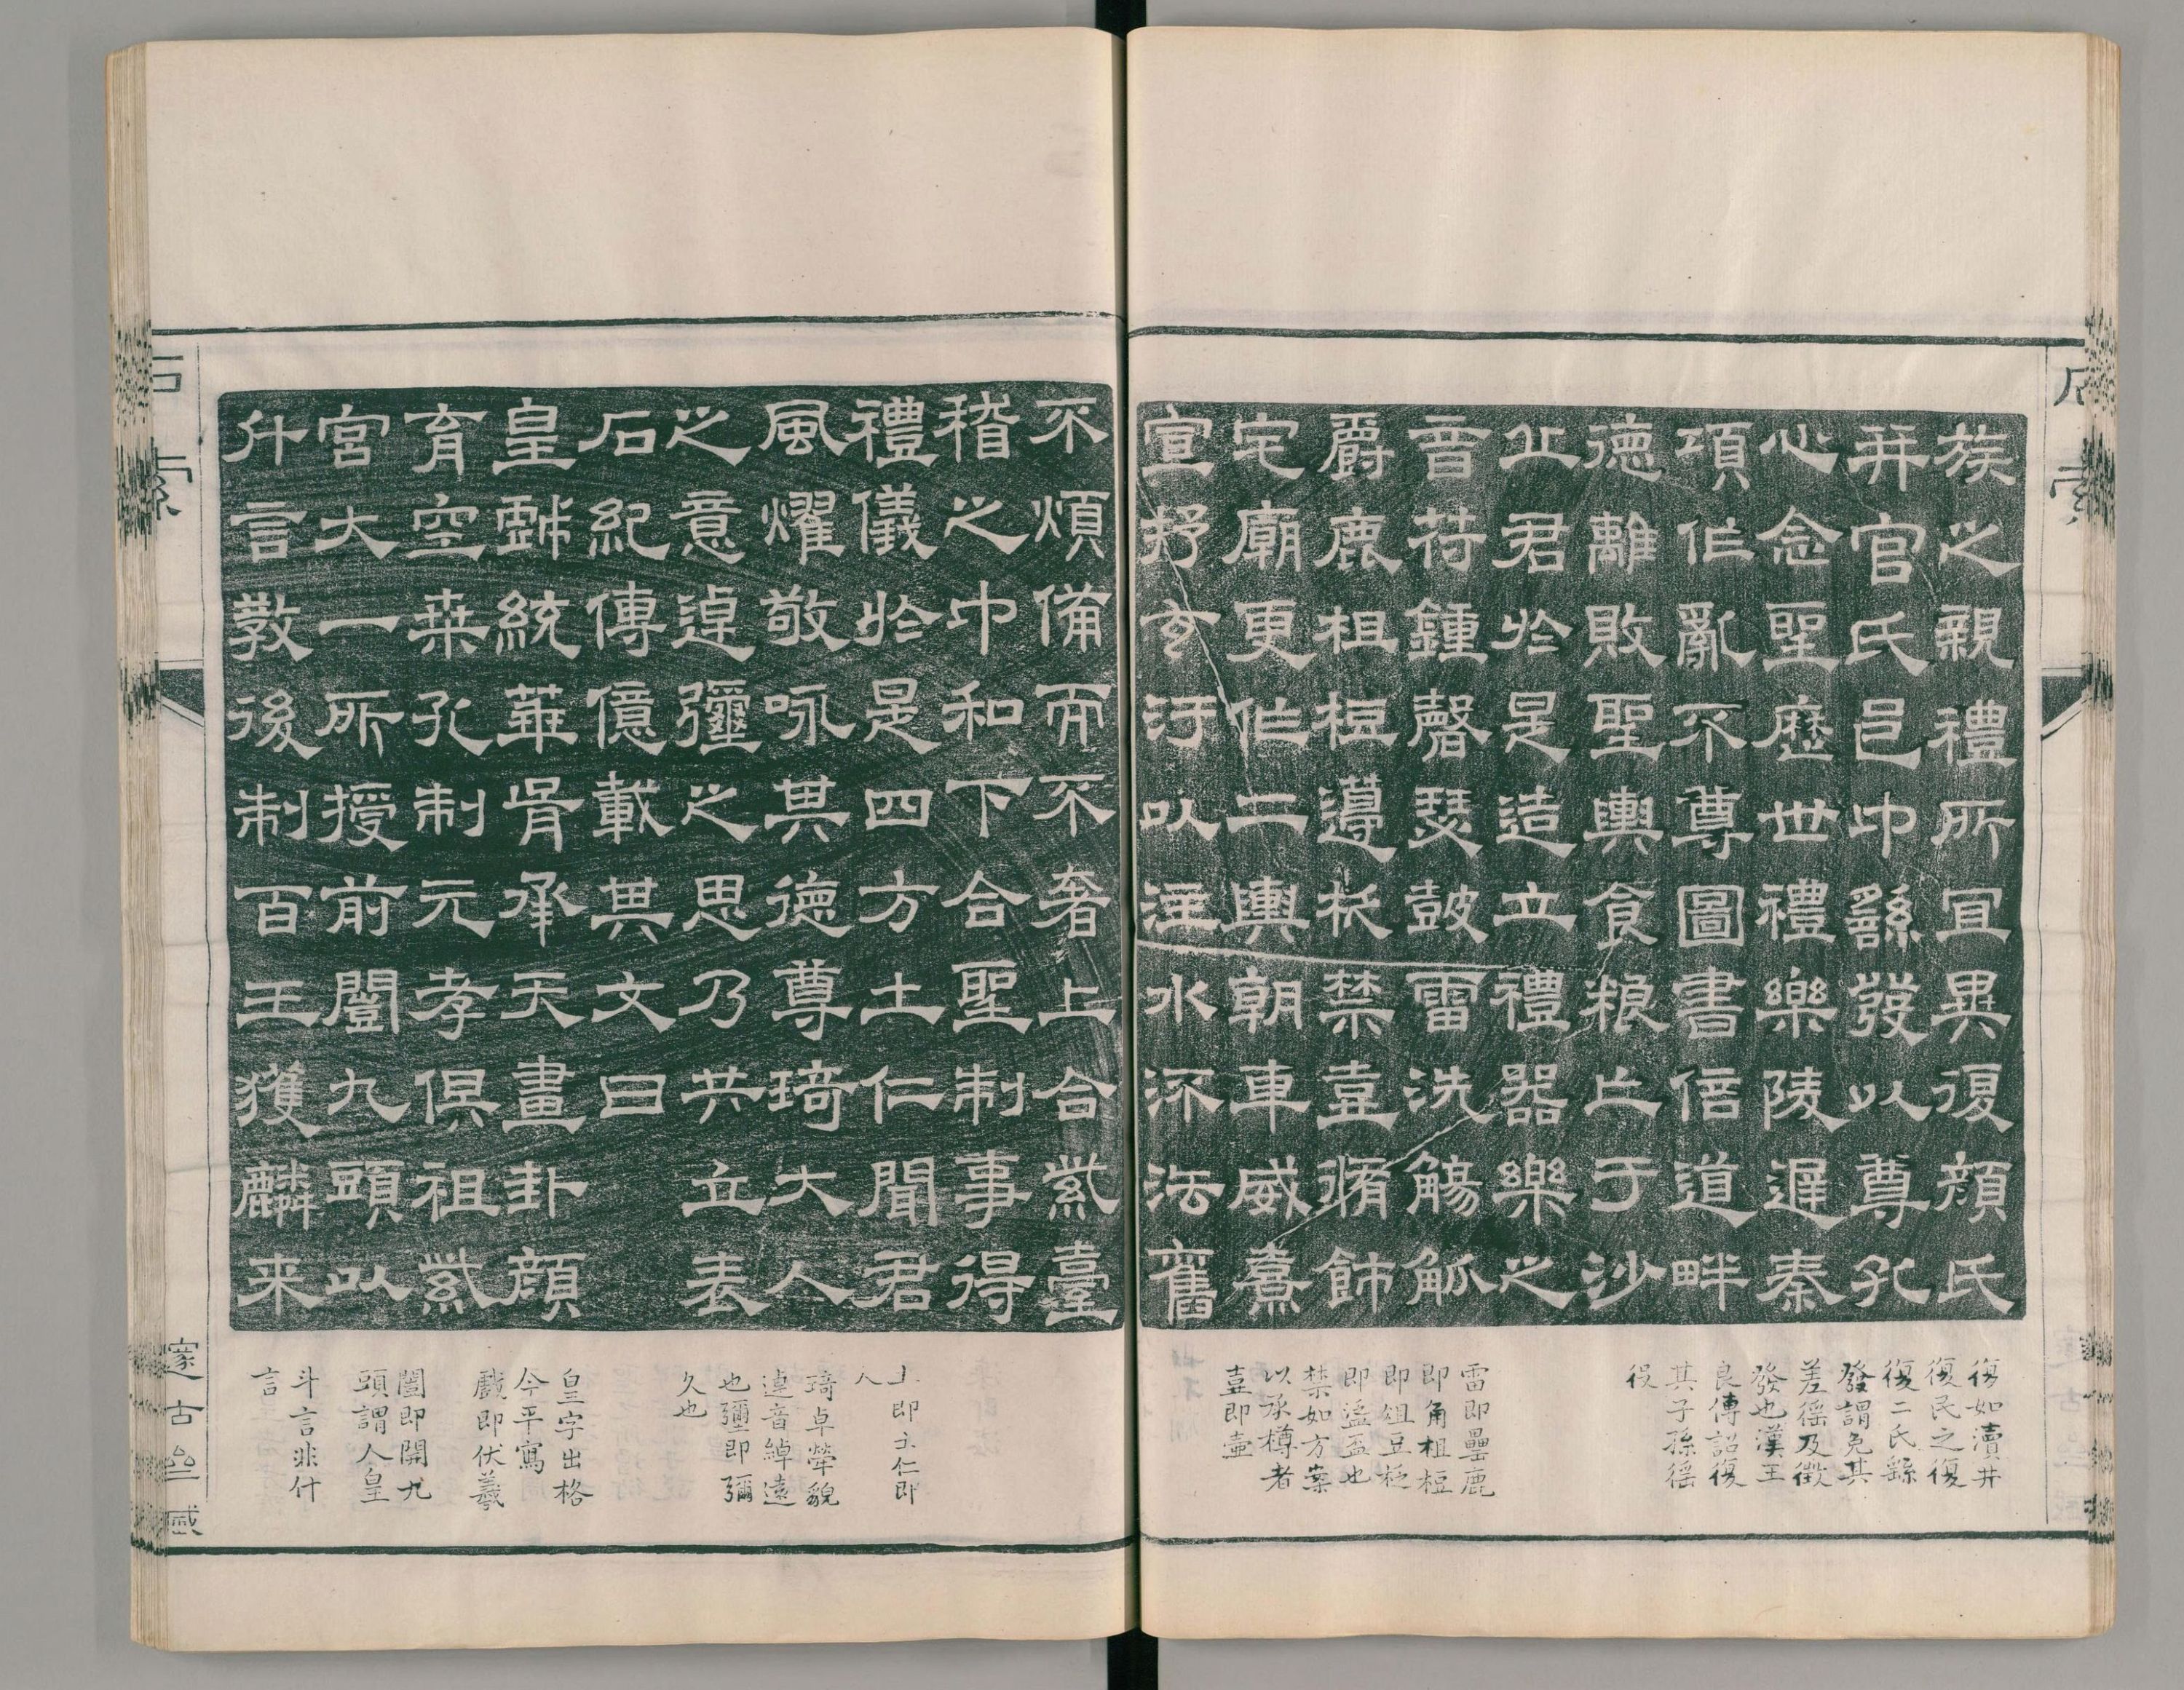 族之親禮所宜異復顔氏
幷官氏邑中繇發以尊孔
心念聖歷世禮樂陵遲秦
項作亂不尊圖書倍道畔
德離敗聖輿食粮亡于沙
丘君於是造立禮器樂之
音苻鍾磬瑟皷雷洗觴觚
爵鹿柤梪籩柉禁壴脩飾
宅廟更作二輿朝車威熹
宣抒玄汙以注水流法舊
復如瀆井
復民之復
復二氏繇
發謂免其
差徭及徵
發也漢王
良傳詔復
其子孫徭
役
雷即罍鹿
即角柤梪
即俎豆柉
即𥁕盃也
禁如方案
以承樽者
壴即壷
不煩備而不奢上合紫臺
稽之中和下合聖制事得
禮儀於是四方土仁聞君
風燿敬咏其德尊琦大人
之意逴彌之思乃共立表
石紀傳億載其文曰
皇戱統華胥承天畫卦顔
育空桒孔制元孝俱祖紫
宮大一所授前闓九頭以
什言敎後制百王獲麟来
土即士仁即
人
琦卓犖貌
逴音綽遠
也彌即彌
久也
皇字出格
今平寫
戲即伏羲
闓即開九
頭謂人皇
斗言非什
言
石索
邃古齋藏